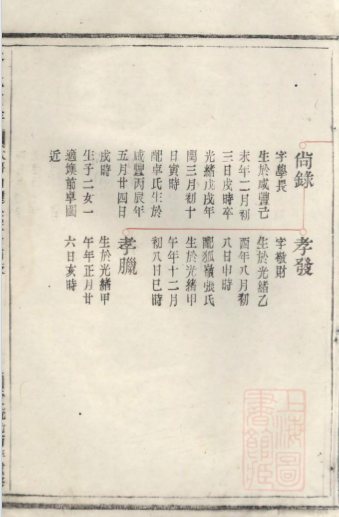 尙錄
字學長
生於咸豐己
未年二月初
三日戌時卒
光緒戊戌年
閏三月初十
日寅時
配卓氏生於
咸豐丙辰年
五月廿四日
戌時
生子二女一
適前卓國
近
孝發
字敬財
生於光緒乙
酉年八月初
八日申時
配狐嶺張氏
生於光緒甲
午年十二月
初八日巳時
孝臘
生於光緒甲
午年正月廿
六日亥時
上海圖
書館藏